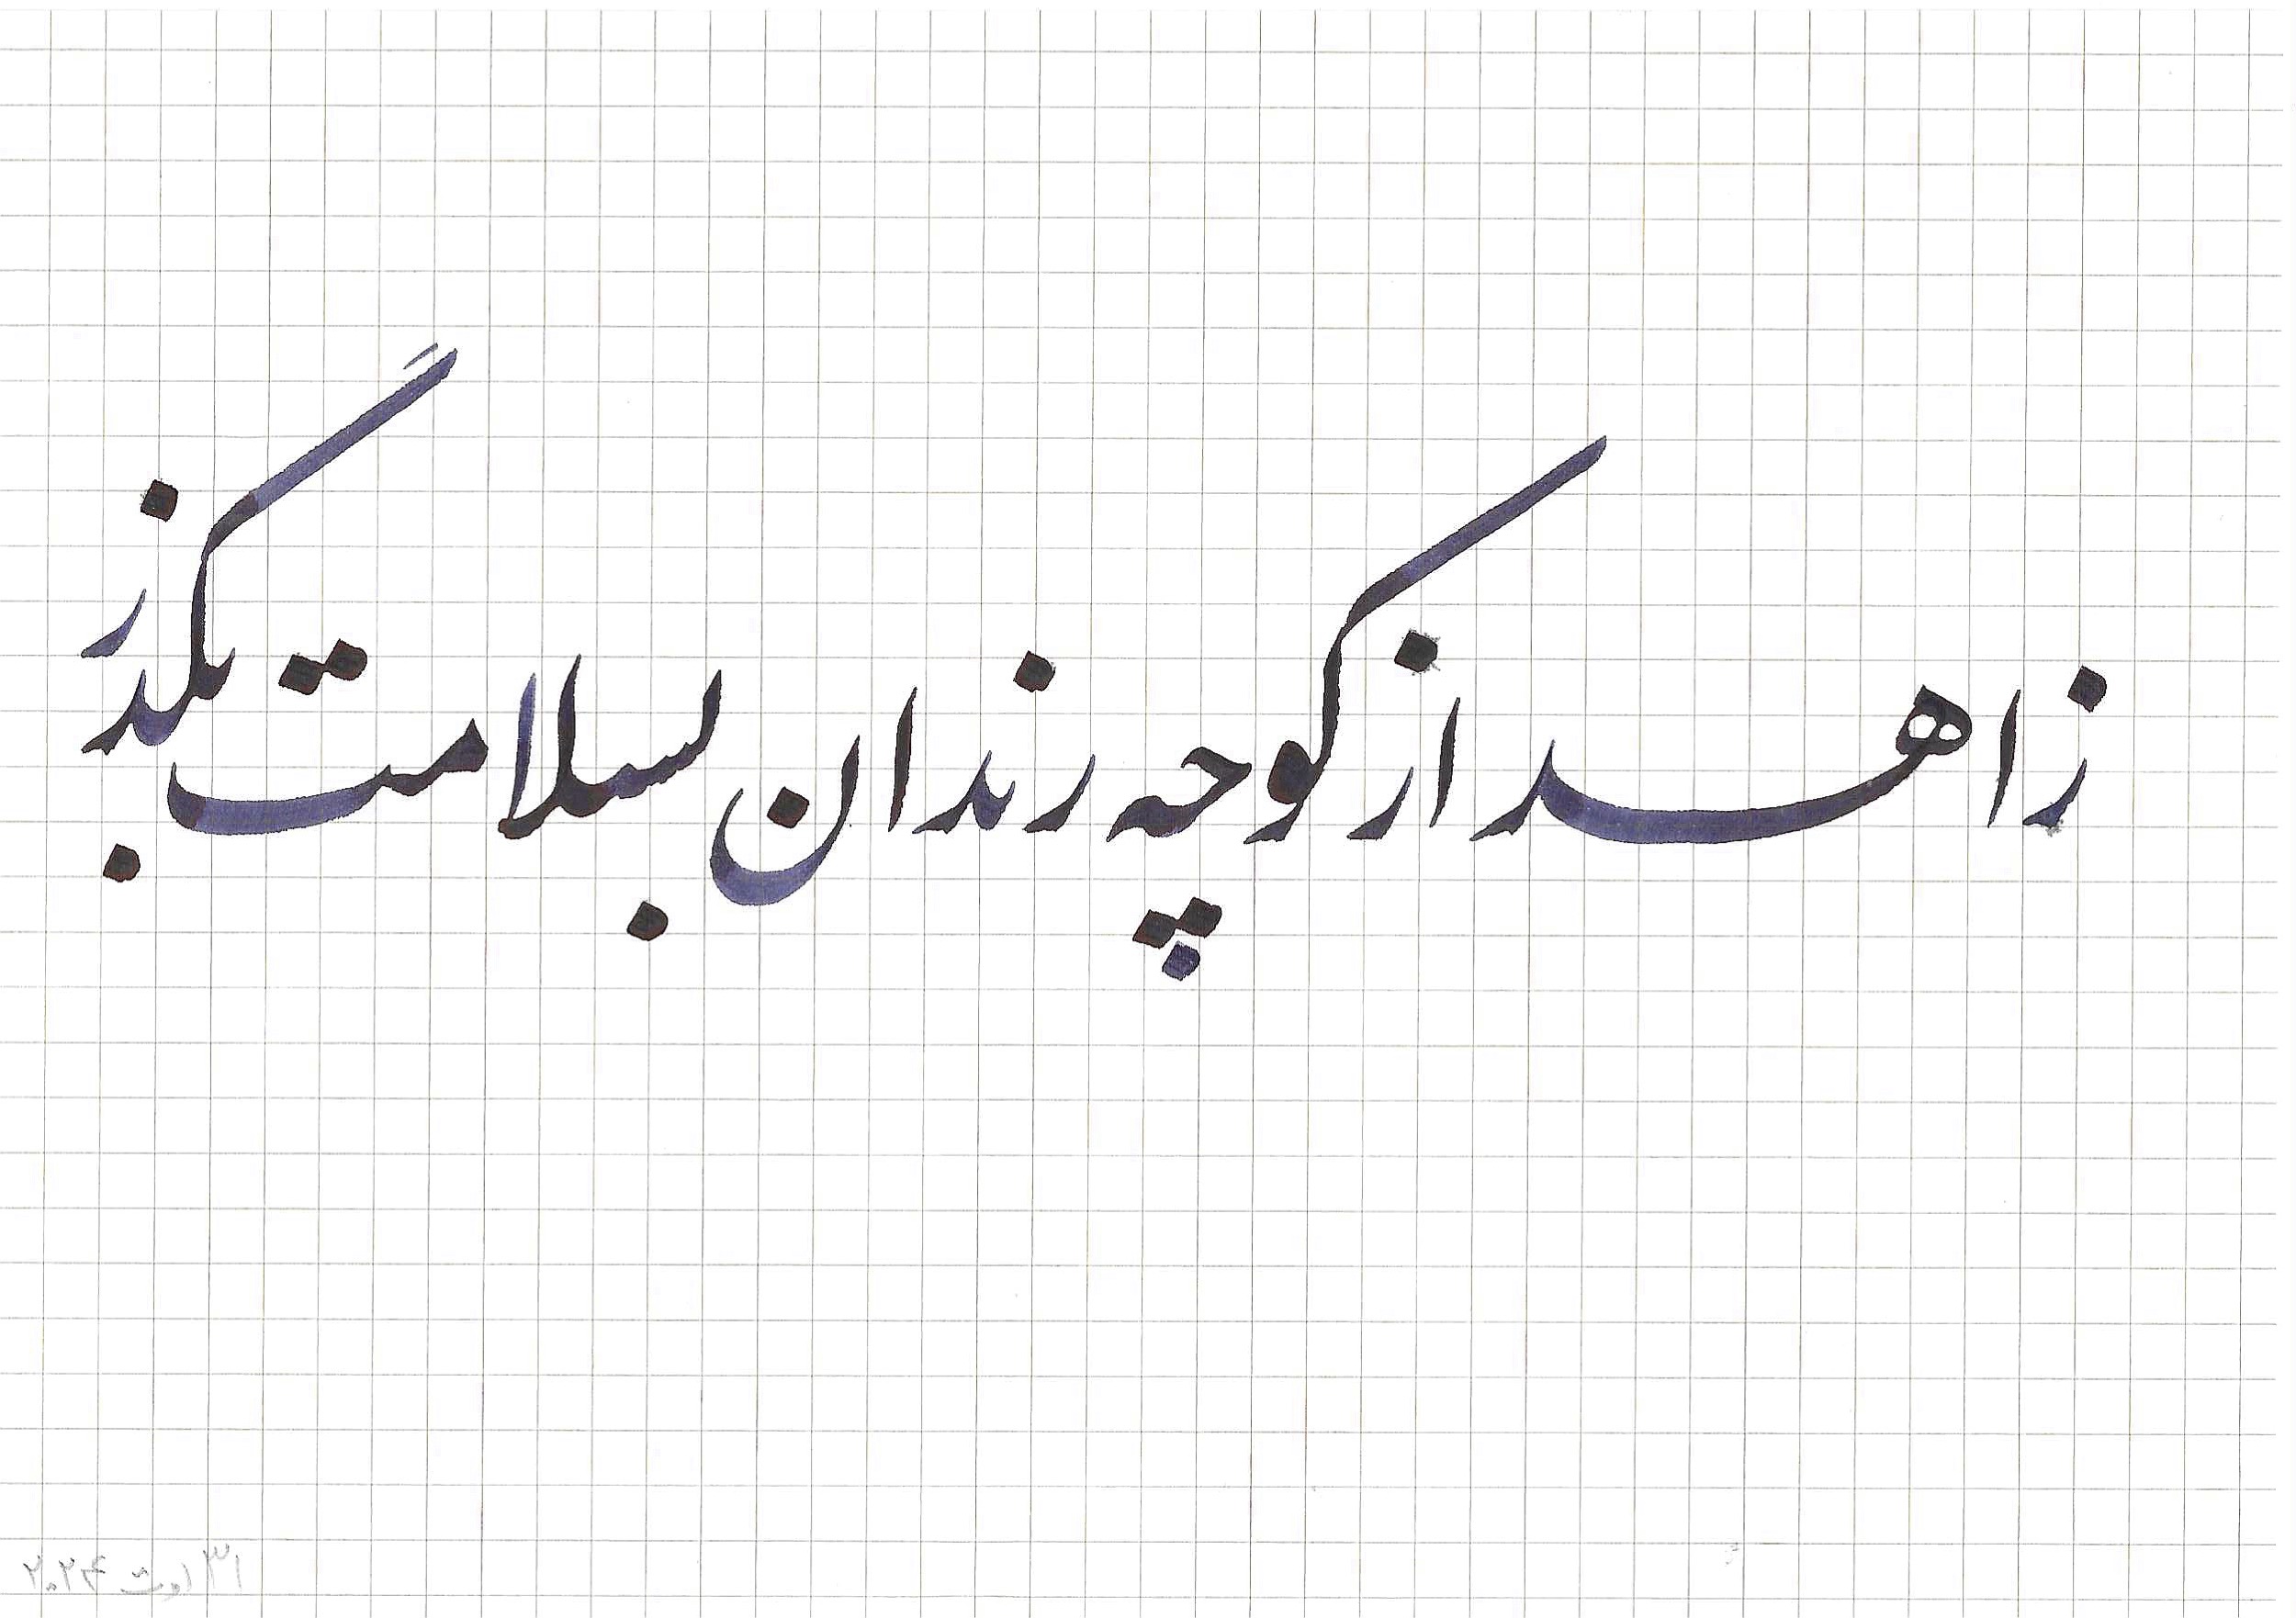 زاهد از کوچه رندان بسلامت بگذر
۳۱ اوت ۲۰۲۴